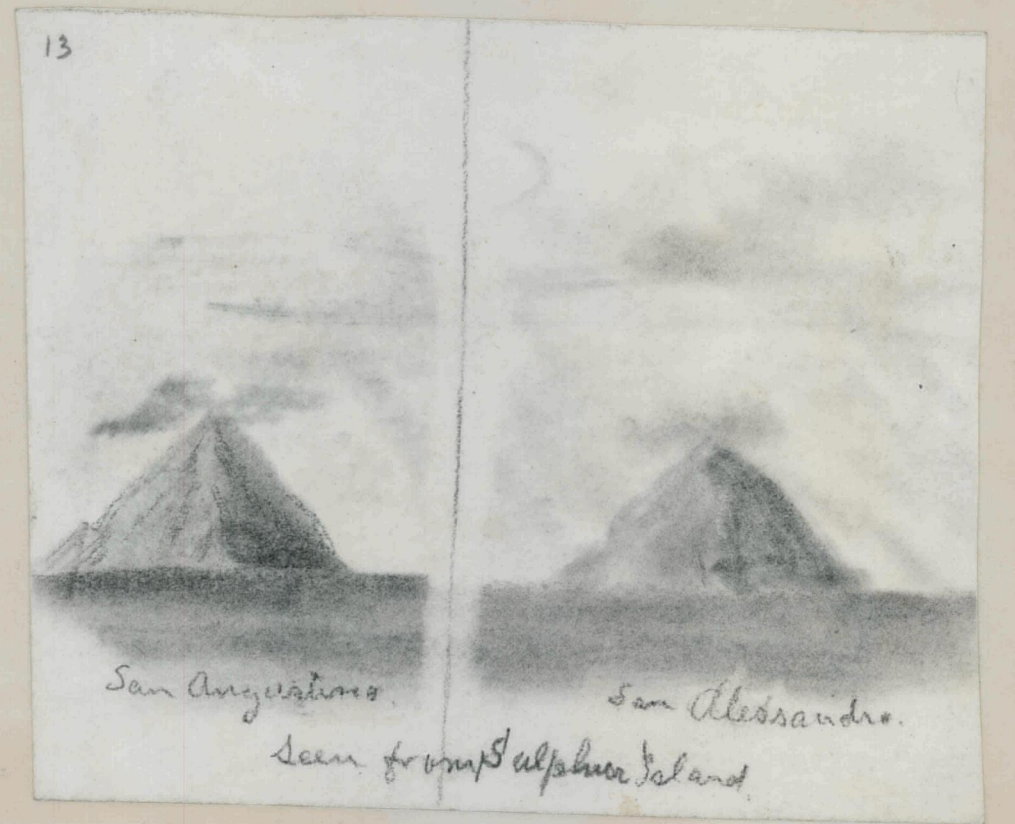 13
San Angustino.
San Alessandro.
Seen from Sulphur Island